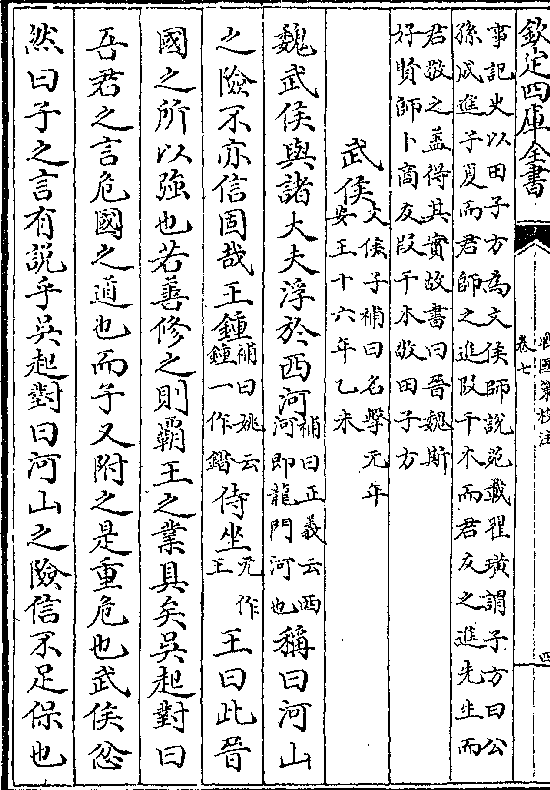 欽定四庫全書
戰國策校注
卷七
四
事記史以田子方為文侯師說苑載翟璜謂子方曰公
孫成進子夏而君師之進段干木而君友之進先生而
君敬之蓋得其實故書曰晉魏斯
好賢師卜商友段干木敬田子方
武侯文侯子補曰名擊元年
安王十六年乙未
魏武侯與諸大夫浮於西河補曰正義云西河即龍門河也稱曰河山
之險不亦信固哉王鍾補曰姚云鍾一作錯侍坐元作王王曰此晉
國之所以強也若善修之則霸王之業具矣吳起對曰
吾君之言危國之道也而子又附之是重危也武侯忿
然曰子之言有說乎吳起對曰河山之險信不足保也